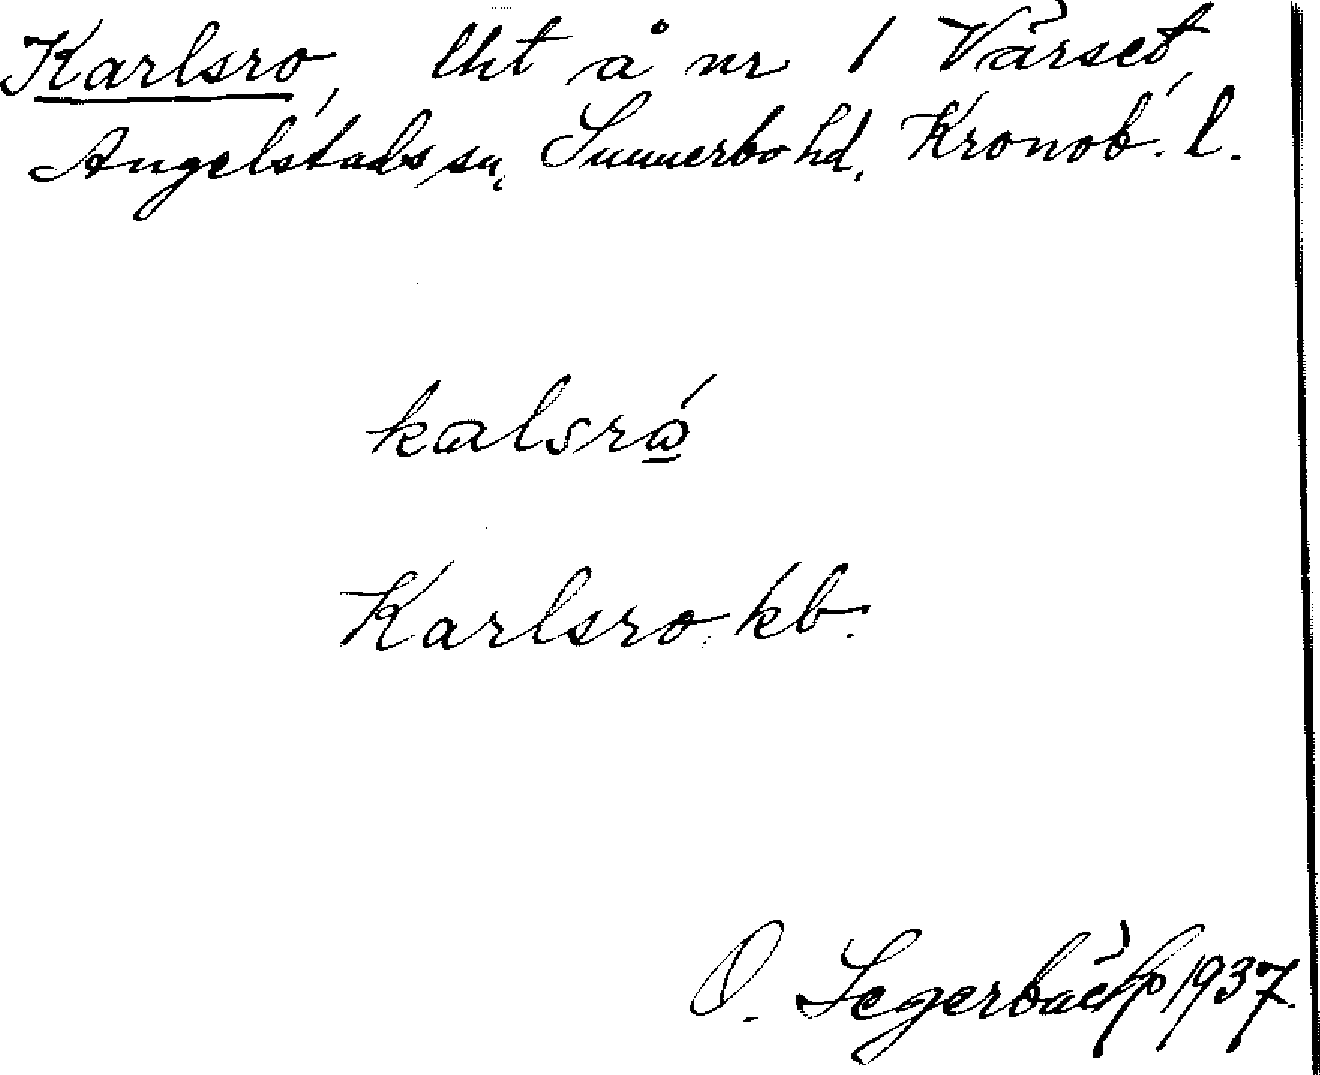 Karlsro, lht å nr 1 Värset,
Angelstads sn, Sunnerbo hd, Kronob. l.
kalsrò̱
Karlsro. kb.
O. Segerbäck 1937.